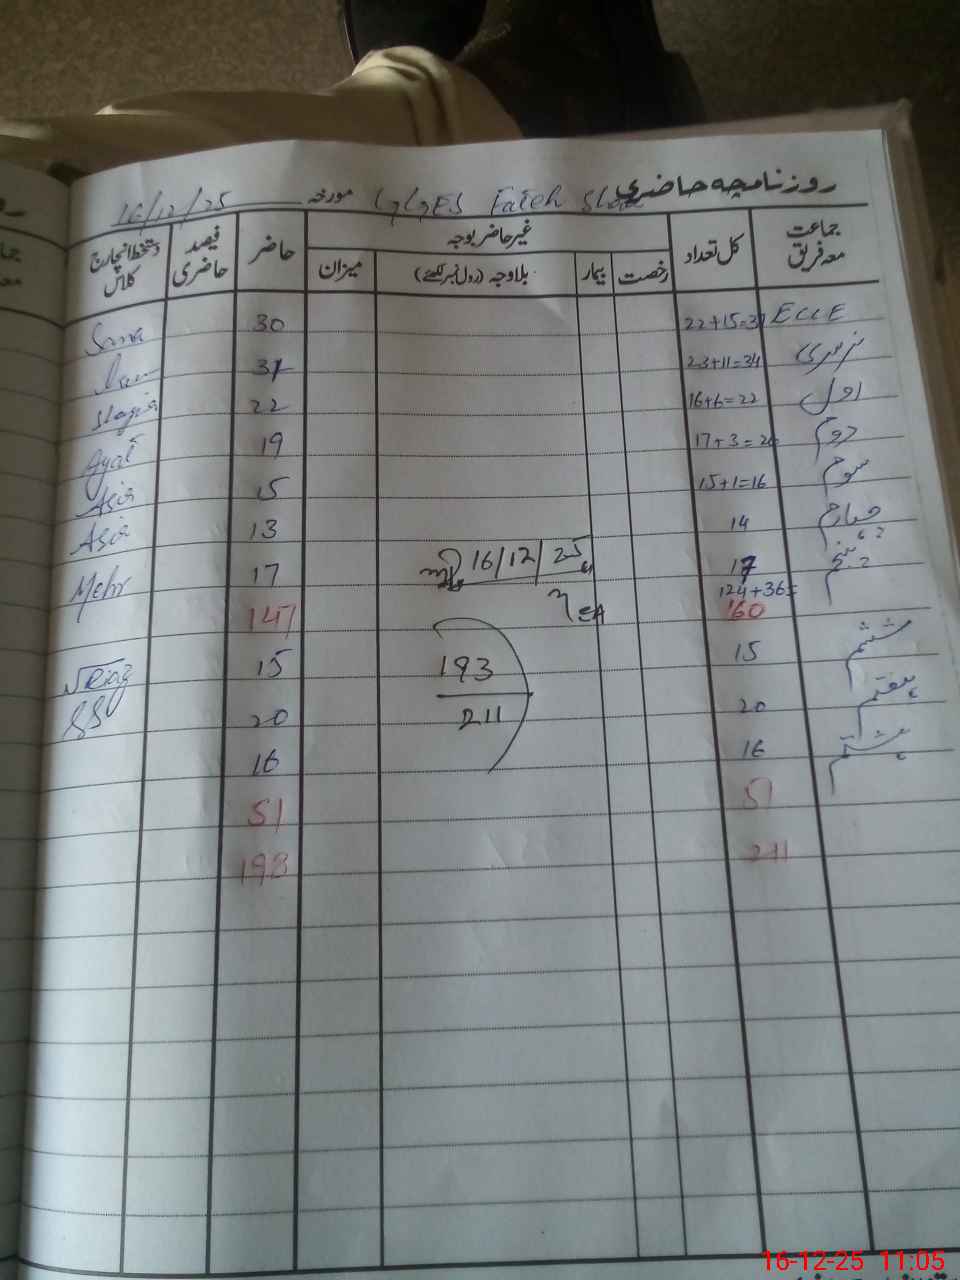 روزنامچہ حاضری GGES Fateh مورخہ 16/12/25
جماعت معہ فریق کل تعداد غیر حاضر بوجہ حاضر فیصد حاضری دستخط انچارج کلاس
رخصت بیمار بلاوجہ (رول نمبر لکھئے) میزان
ECCE 22+15=37 30 Sana
نرسری 23+11=34 31
اول 16+6=22 22
دوم 17+3=20 19 Ayat
سوم 15+1=16 15 Asia
چہارم 14 13 Asia
پنجم 17 17 Mehr
16/12/25
124+36=
160 147
EA
ششم 15 15 Riaz
193
ہفتم 20 20 SS
211
ہشتم 16 16
51 51
211 198
16-12-25 11:05